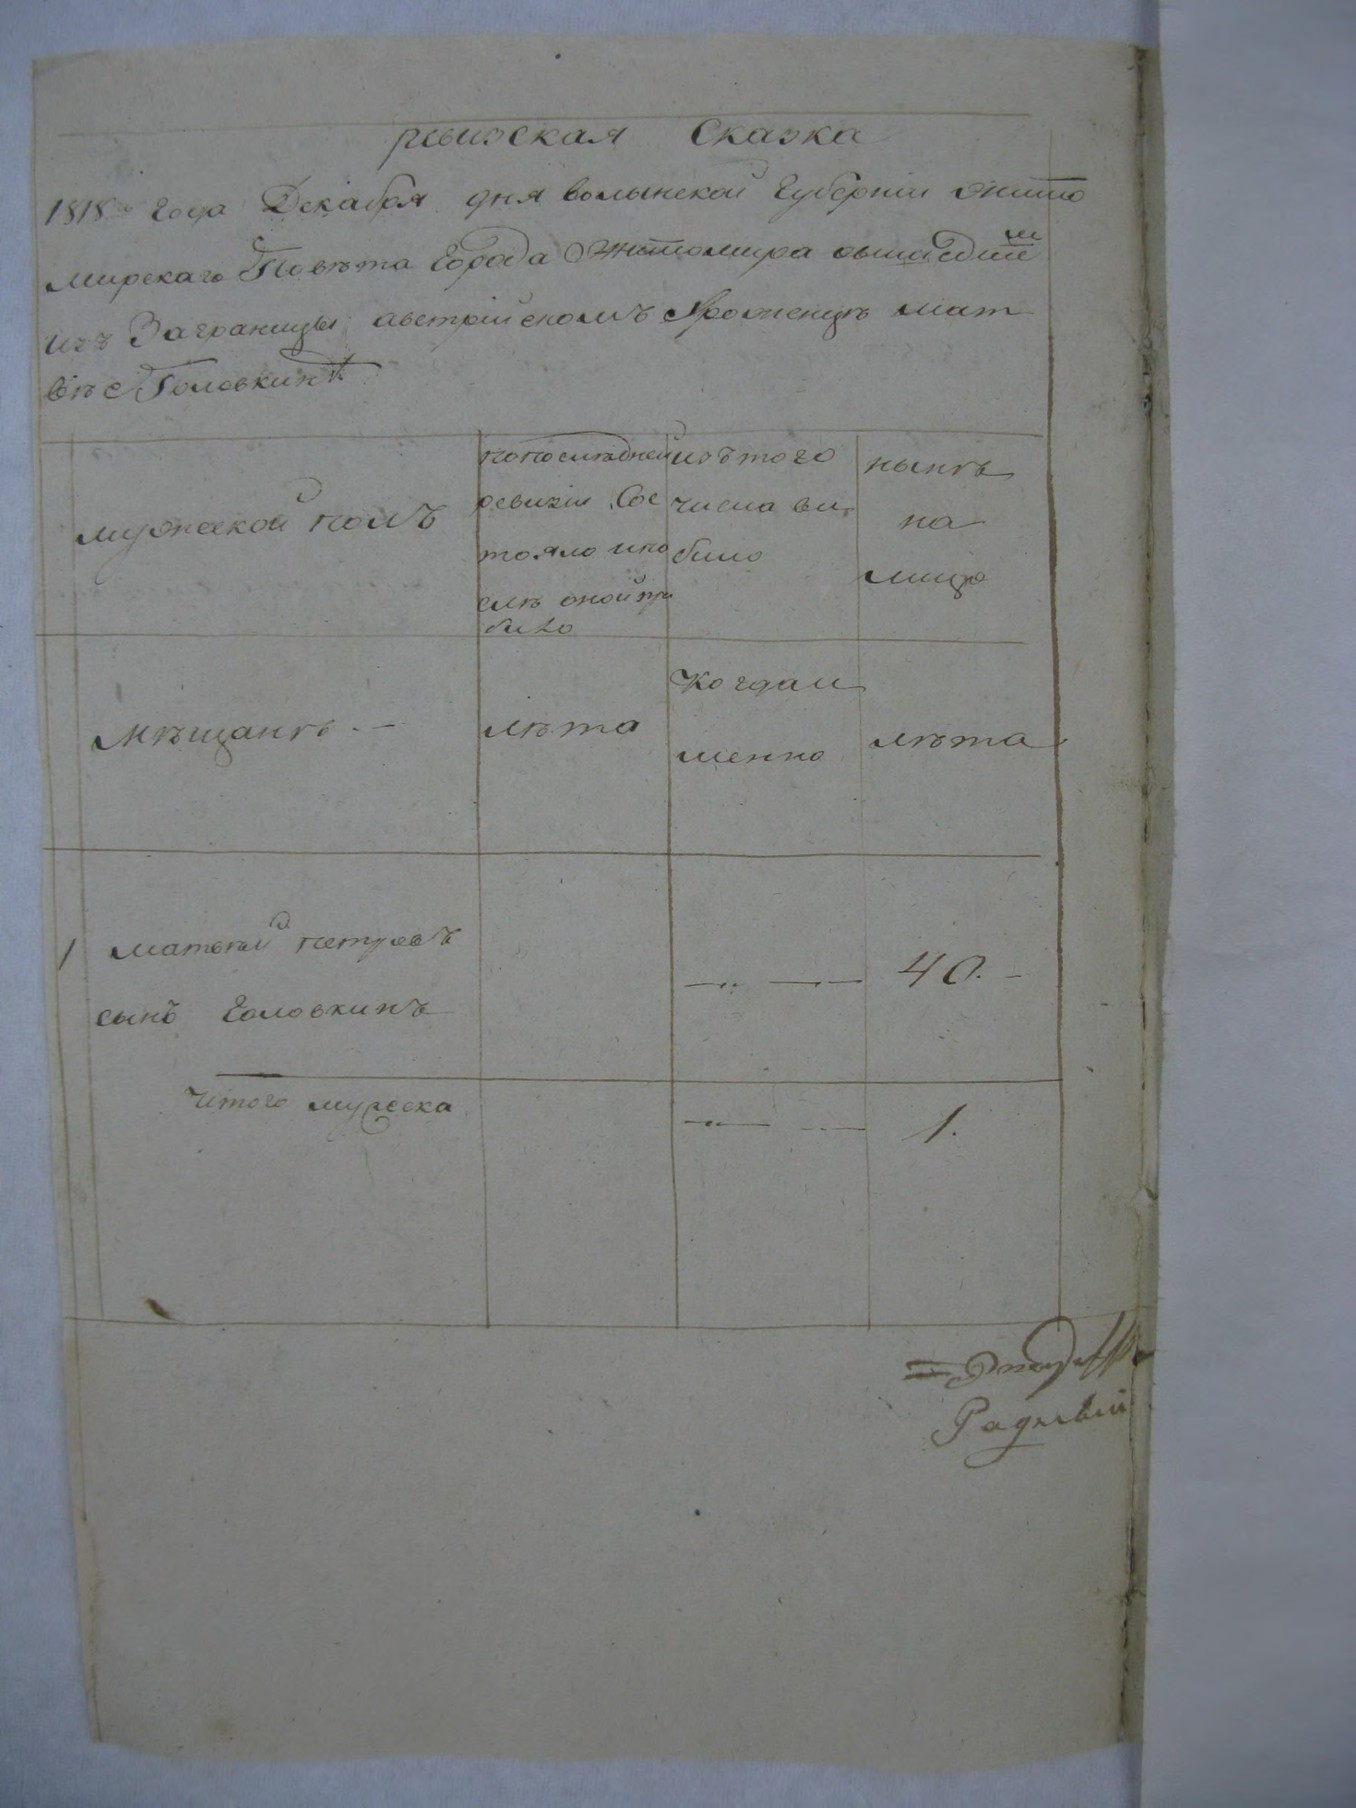 ревизская Сказка
1818го года Декабря дня волынской Губернии Жито
мирскаго Повѣта Города Житомира овышедшем
изъ Заграницы австрийскомъ Уроженцѣ мат
вѣе Головкинѣ
мужеской полъ
попоследней
ревизии Сос
тояло ипо
слѣ оной при
било
изътого
числа ви
било
нынѣ
на
лицо
Мѣщанѣ. —
лѣта
Когдаи
менно
лѣта
1 матвей петровъ
сынъ Головкинъ
40. -
Итого мужеска
1.